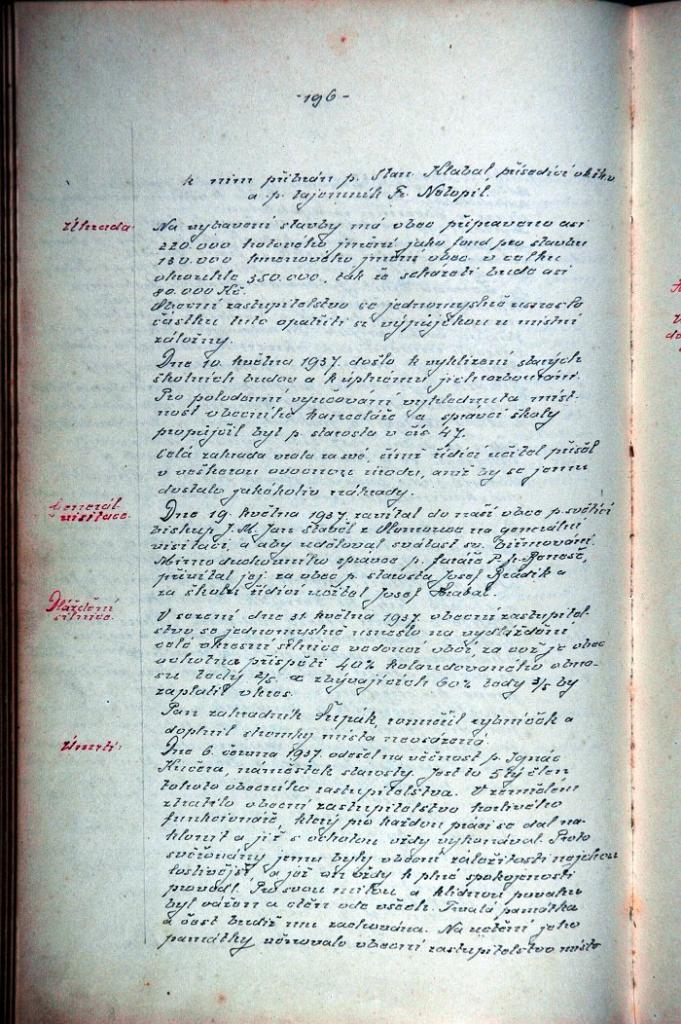 -196-
k nim přibrán p. Stan. Klabal, přísedící
a p. tajemník Fr. Nelopil.
Úhrada
Na vybavení stavby má obec připraveno asi
220.000 hotového jmění jako fond pro stavbu
130.000 kmenového jmění obec. v celku
okrouhle 350.000, tak že scházeti bude asi
80.000 Kč.
Obecní zastupitelstvo se jednomyslně usneslo
částku tuto opatřiti si výpůjčkou u místní
záložny.
Dne 10. května 1937. došlo k vyklizení starých
školních budov a k úplnému jich rozbourání.
Pro polodenní vyučování vyhlédnuta míst-
nost obecního kanceláře a správci školy
propůjčil byt p. starosta v čís 47.
Celá zahrada vzala za své, čímž řídící učitel přišel
o veškerou ovocnou úrodu, aniž by se jemu
dostalo jakákoliv náhrady.
Generál.
visitace.
Dne 19. května 1937. zavítal do naší obce p. světící
biskup J. M. Jan Stavěl z Olomouce na generální
visitaci, a aby uděloval svátost sv. biřmování.
Mimo duchovního správce p. faráře P. Beneše,
přivítal jej za obec p. starosta Josef a
za školu řídící učitel Josef Hrabal.
Dláždění
silnice.
V sezení dne 31 května 1937. obecní zastupitel-
stvo se jednomyslně usneslo na vydláždění
celé okresní silnice vedoucí obcí, za což je obec
ochotna přispěti 40% kolaudovaného obno-
su tedy 2/5 a zbývajících 60% tedy 3/5 by
zaplatil okres.
Pan zahradník Řupák, rybníček a
doplnil stromky místa neosázená.
Úmrtí:
Dne 6. června 1937. odešel na věčnost p. Ignác
Kučera, náměstek starosty. Jest to 5tý člen
tohoto obecního zastupitelstva. V zemřelém
ztratilo obecní zastupitelstvo horlivého
funkcionáře, který pro každou práci se dal na-
klonit a již s ochotou vždy vykonával. Proto
svěřovány jemu byly obecní záležitosti nejchou
lostivější, a jež on vždy k plné spokojenosti
provedl. Pro svou milou a klidnou povahu
byl vážen a ctěn ode všech. Trvalá památka
a čest budiž mu zachována. Na uctění jeho
památky věnovalo obecní zastupitelstvo místo